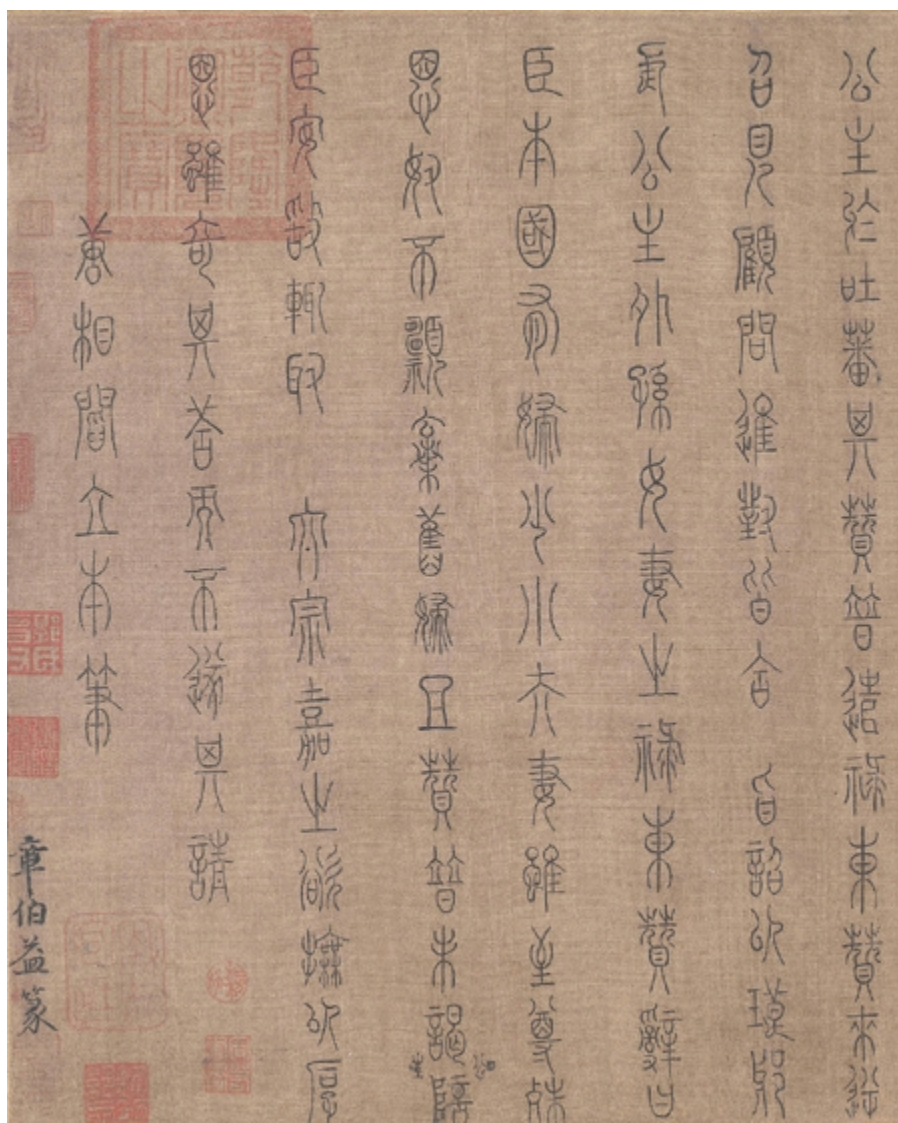 公主於吐蕃其贊普遣祿東贊來逆
召見顧問進對皆合 旨詔以瑯琊
長公主外孫女妻之祿東贊辭曰
臣本國有婦少小夫妻雖至尊殊
恩奴不願棄舊婦且贊普未謁公主陪
臣安敢輒取 太宗嘉之欲撫以厚
恩雖奇其答而不遂其請
唐相閻立本筆
章伯益篆